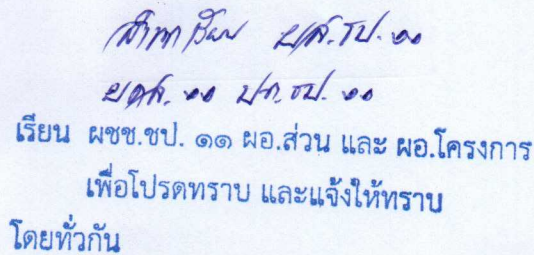 สำเนาเรียน ผส.ชป. ๑๑
เรียน ผชช.ชป. ๑๑ ผอ.ส่วน และ ผอ.โครงการ
เพื่อโปรดทราบ และแจ้งให้ทราบ
โดยทั่วกัน